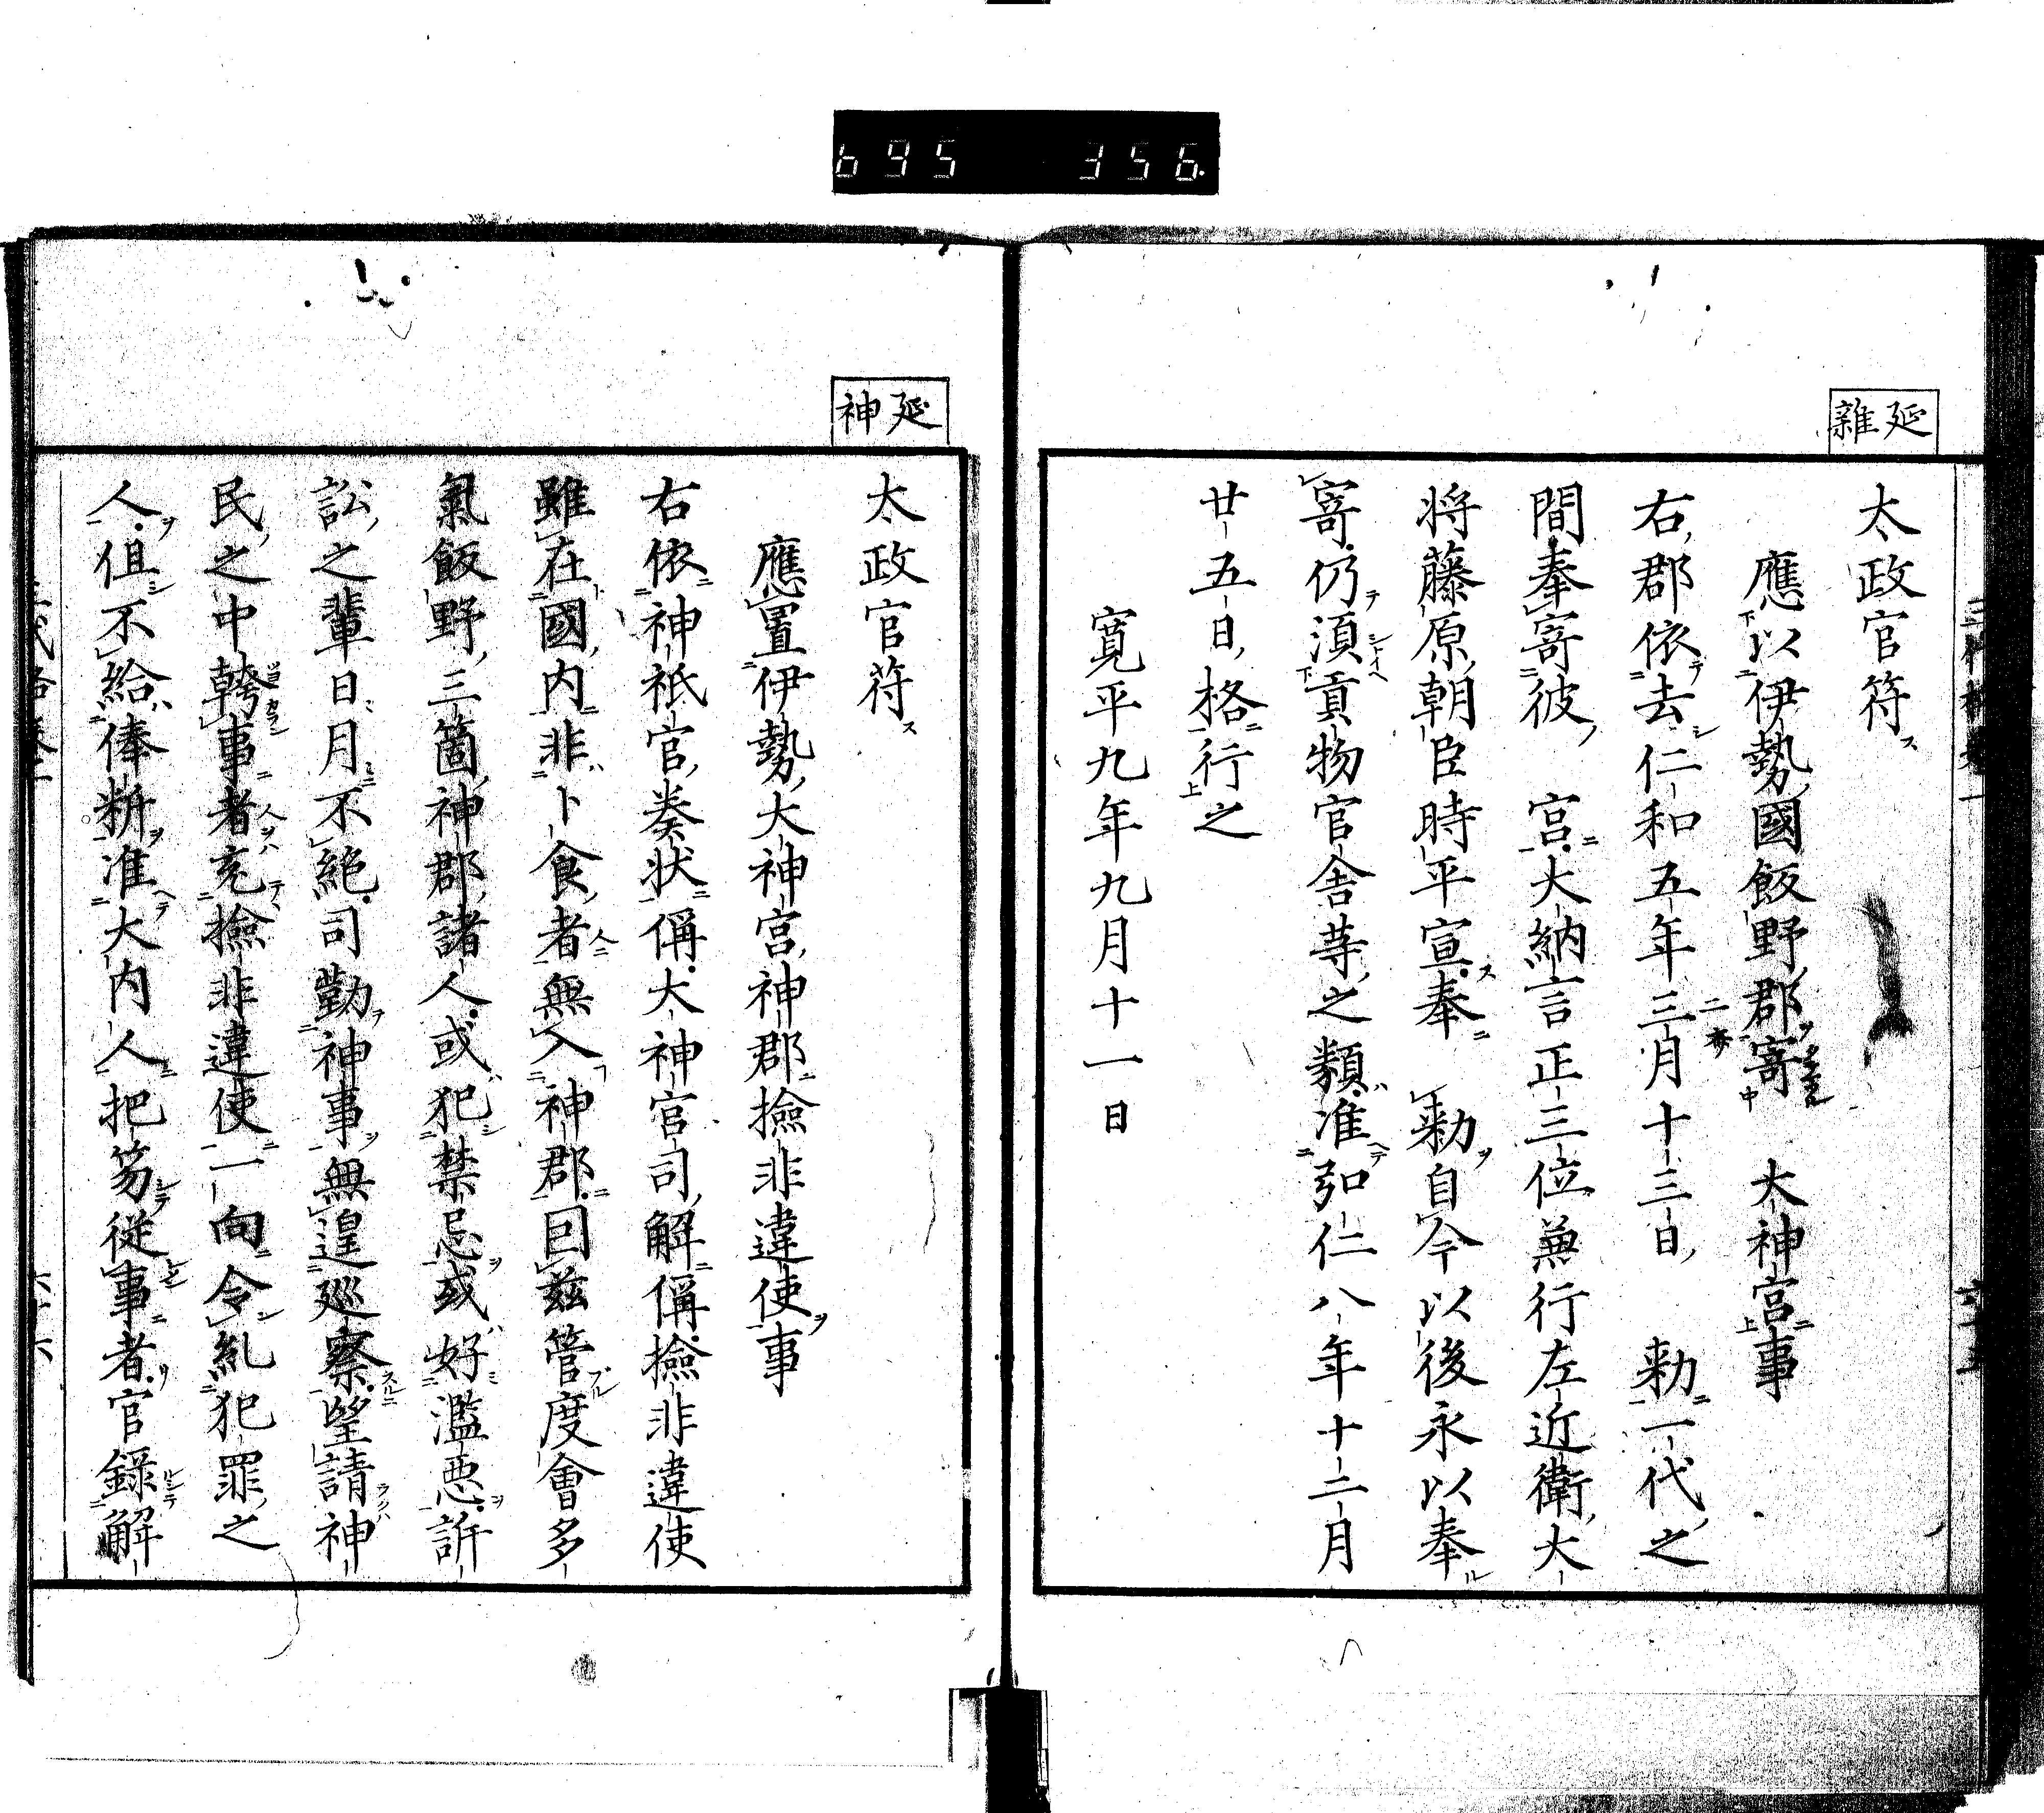 695 356.
延雜
太政官符
應以伊勢國飯野郡寄 太神宮事
右郡依去仁和五年三月十三日 勅一代之
間奉寄彼 宮大納言正三位兼行左近衛大
将藤原朝臣時平宣奉 勅自今以後永以奉
寄仍須貢物官舎等之類准弘仁八年十二月
廿五日格行之
寛平九年九月十一日
延神
太政官符
應置伊勢大神宮神郡撿非違使事
右依神祇官奏状偁大神宮司解偁撿非違使
雖在國内非卜食者無入神郡回兹管度會多
氣飯野三箇神郡諸人或犯禁忌或好濫悪訴
訟之輩日月不絶司勤神事無遑巡察望請神
民之中幹事者充撿非違使一向令糺犯罪之
人但不給俸粮准大内人把笏従事者官録解